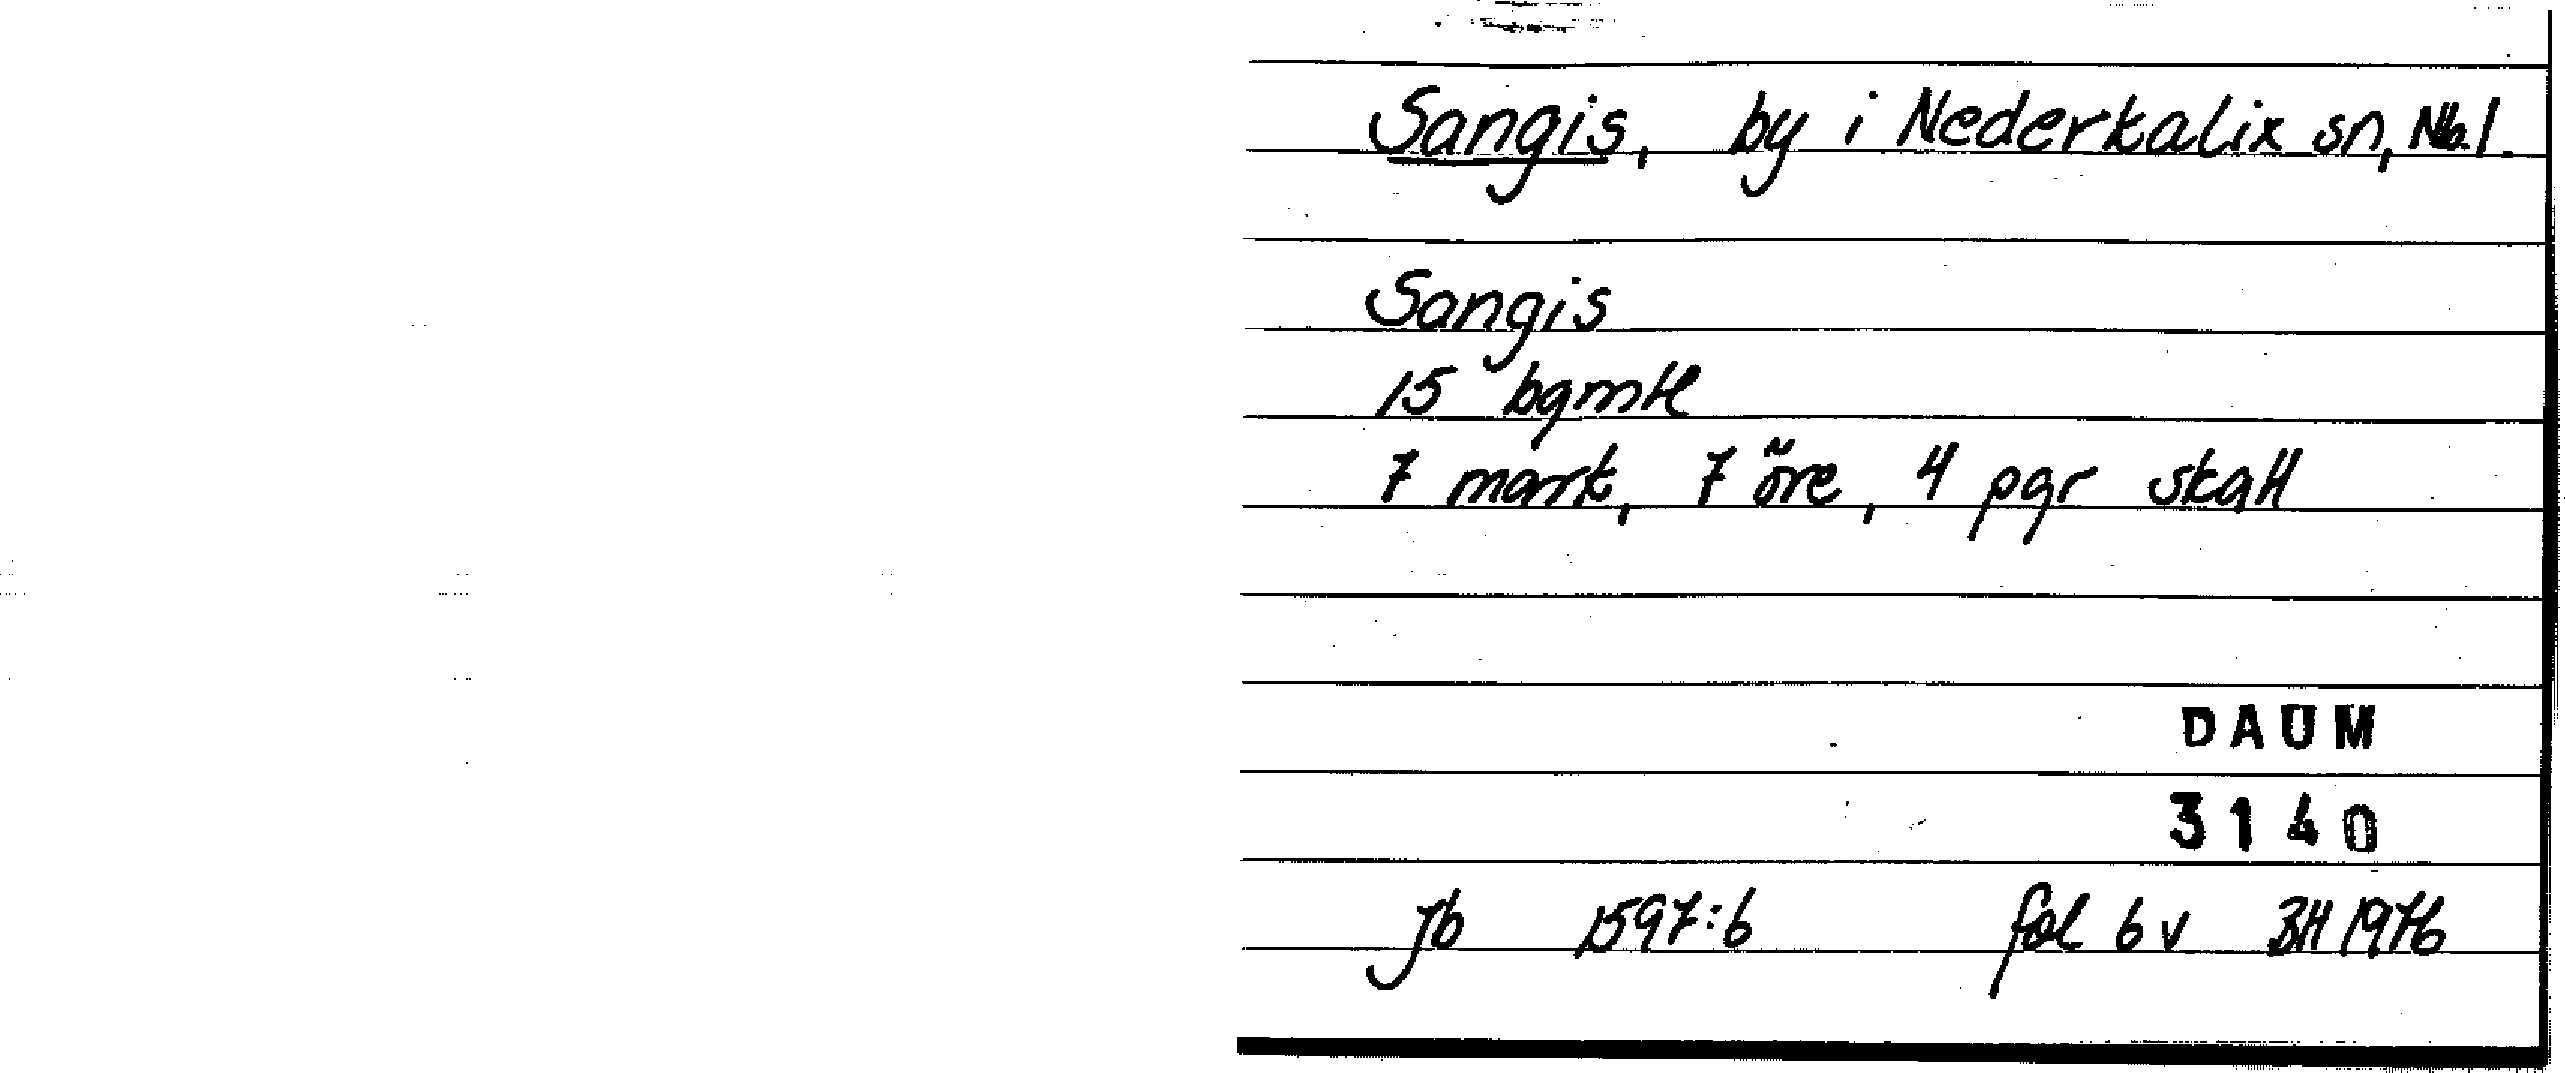 Sangis, by i Nederkalix sn, Nb.l.
Sangis
15 bgmtl
7 mark, 7 öre, 4 pgr skatt
DAUM
3140
Jb 1597:6 fol 6 v BH 1976